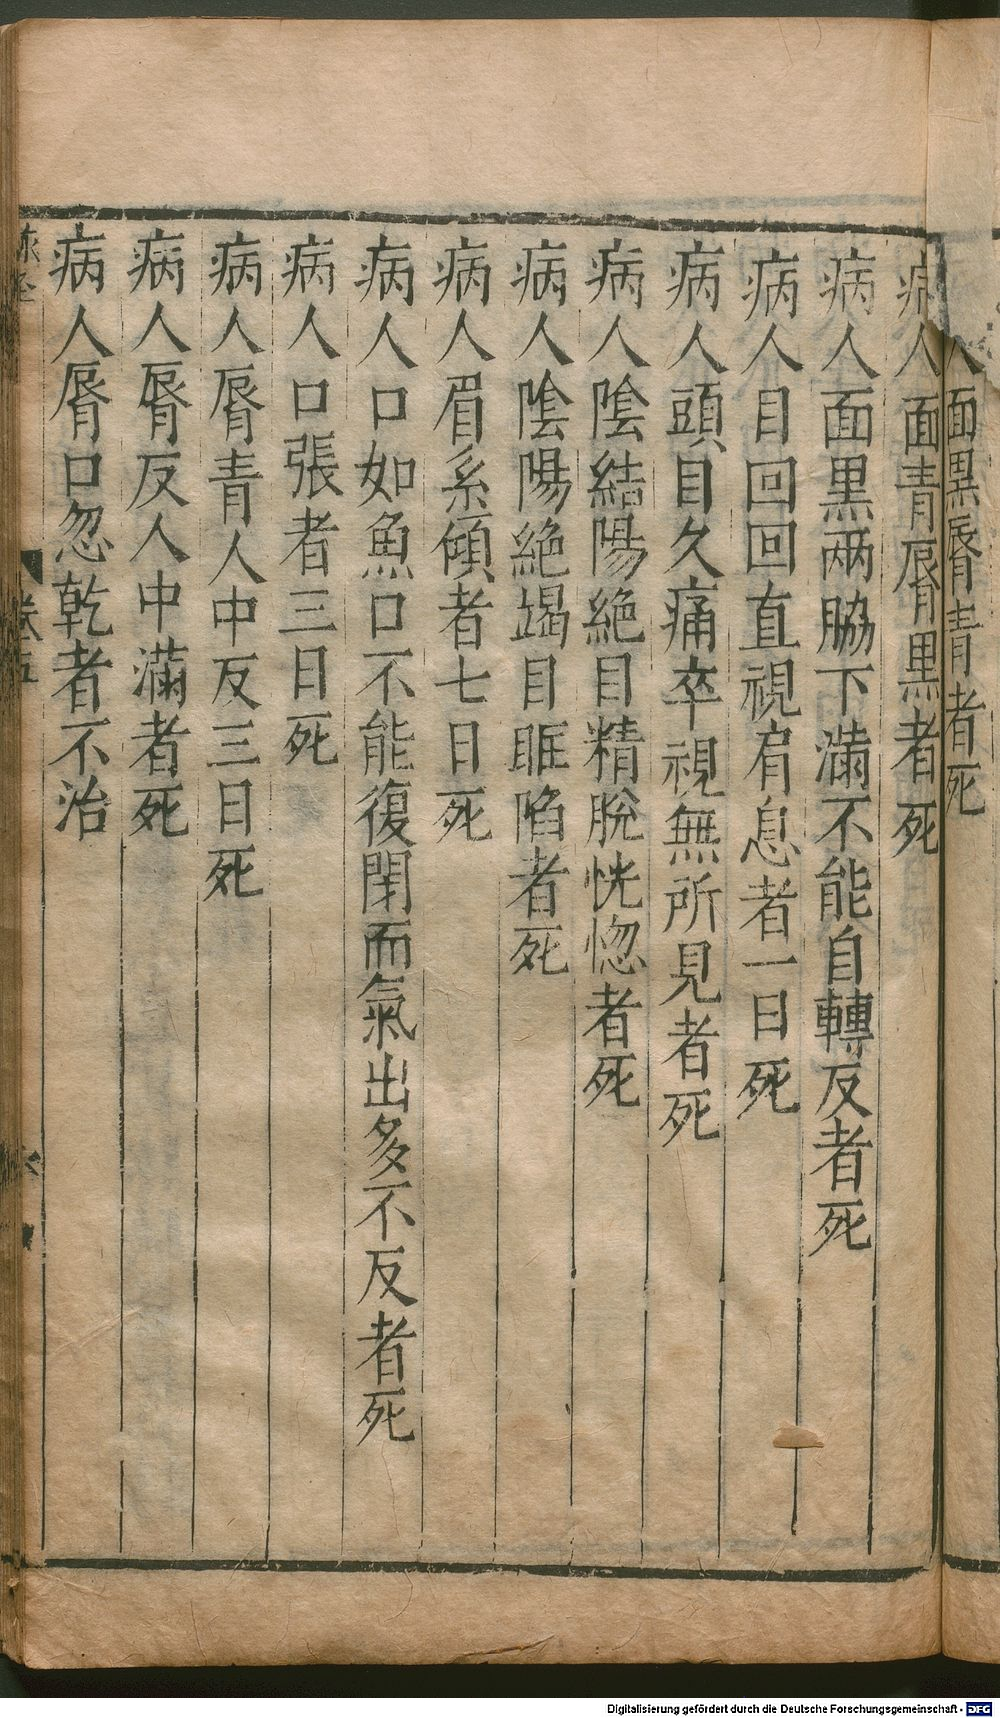 人面黑脣青者死
病人面青脣黑者死
病人面黒两脇下滿不能自轉反者死
病人目回回直視肩息者一日死
病人頭目久痛卒視無所見者死
病人陰結陽絶目精脫恍惚者死
病人陰陽絶竭目眶陷者死
病人眉系傾者七日死
病人口如魚口不能復閉而氣出多不反者死
病人口張者三日死
病人脣青人中反三日死
病人脣反人中滿者死
病人脣口忽乾者不治
卷五
Digitalisierung gefördert durch die Deutsche Forschungsgemeinschaft - DFG